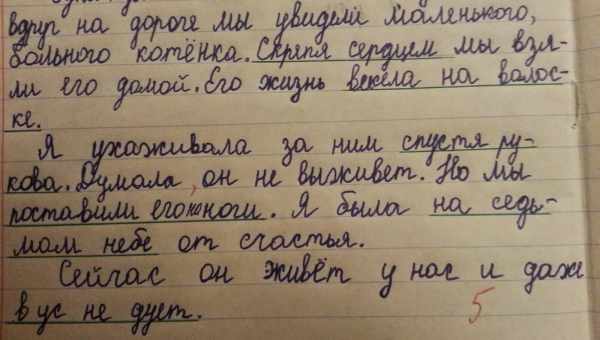 вдруг на дороге мы увидели маленького,
больного котёнка. Скрепя сердцем мы взя-
ли его домой. Его жизнь векела на волос-
ке.
Я ухаживала за ним спустя ру-
кова. Думала, он не выживет. Но мы
поставили его на ноги. Я была на седь-
мом небе от счастья.
Сейчас он живёт у нас и даже
в ус не дует.
5